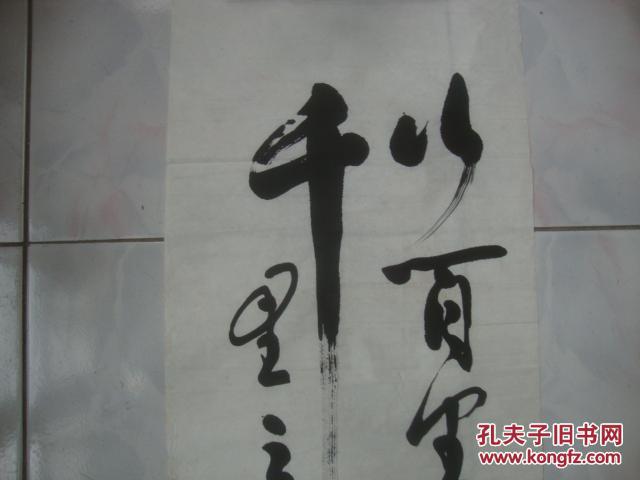 以百里
千里之
孔夫子旧书网
www.kongfz.com